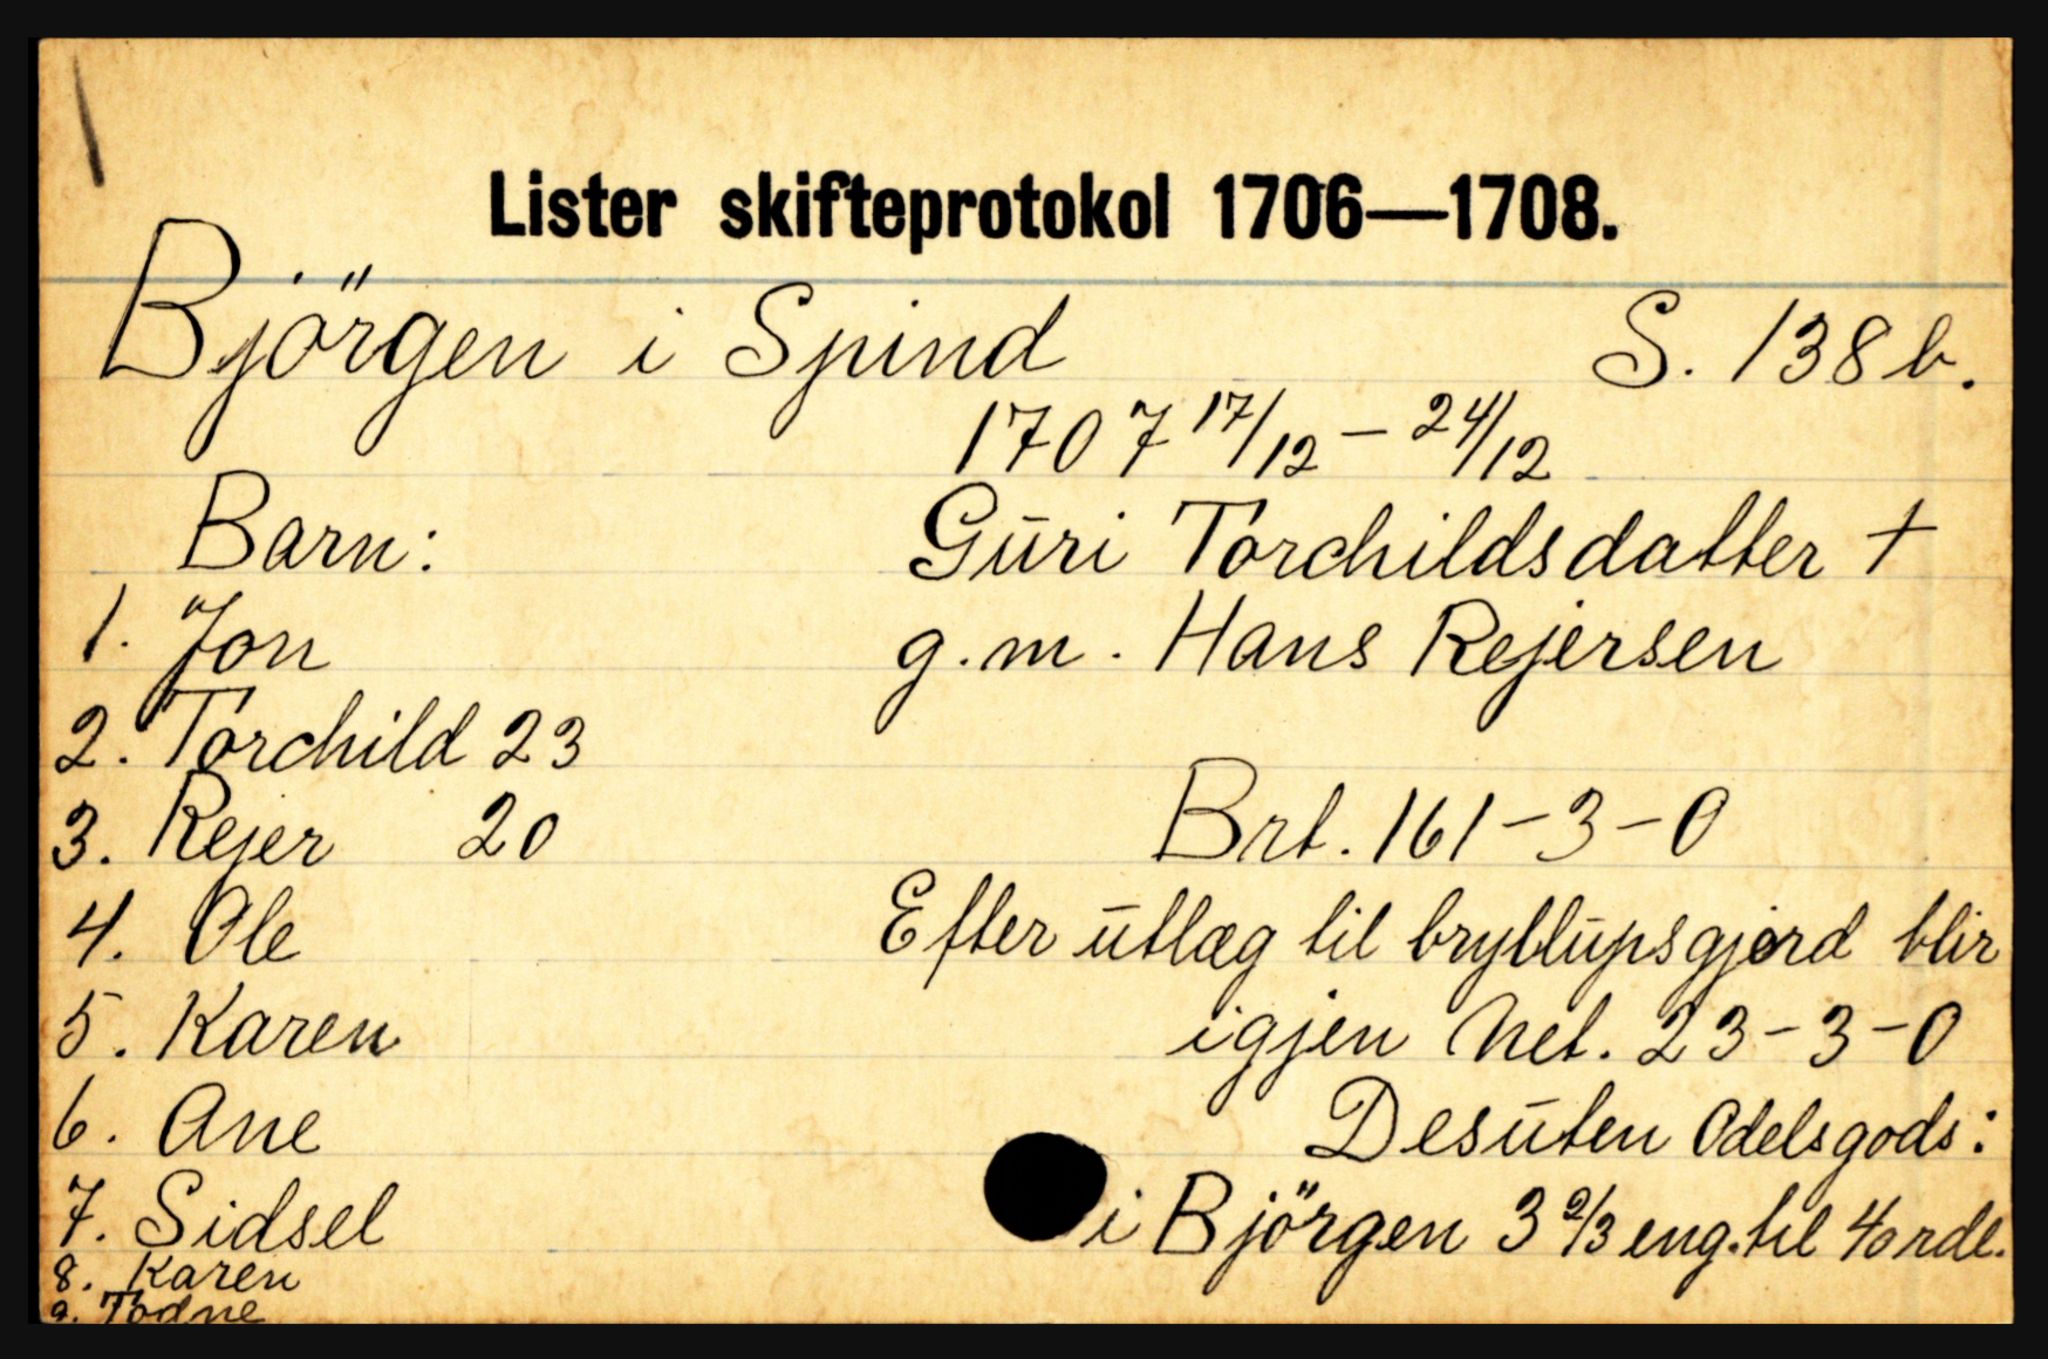 Lister skifteprotokol 1706—1708.
Björgen i Spind S. 138 b.
1707 17/12 – 24/12
Barn: Guri Torchildsdatter †
1. Jon g.m. Hans Rejersen
2. Torchild 23
3. Rejer 20 Brt. 161-3-0
4. Ole Efter utlæg til bryllupsgjerd blir
5. Karen igjen Net. 23-3-0
6. Ane Desuten Odelsgods:
7. Sidsel i Björgen 3 2/3 eng. til 40 rdl.
8. Karen
9. Todne